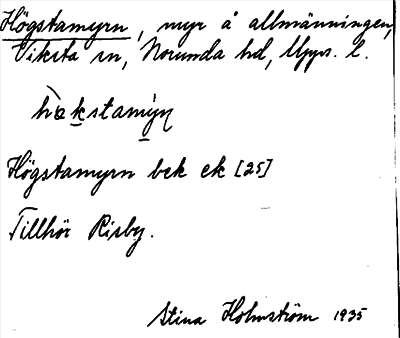 Högstamyrn, myr å allmänningen,
Viksta sn, Norunda hd, Upps. l.
Högstamyrn bek ek [25]
Tillhör Risby.
Stina Holmström 1935